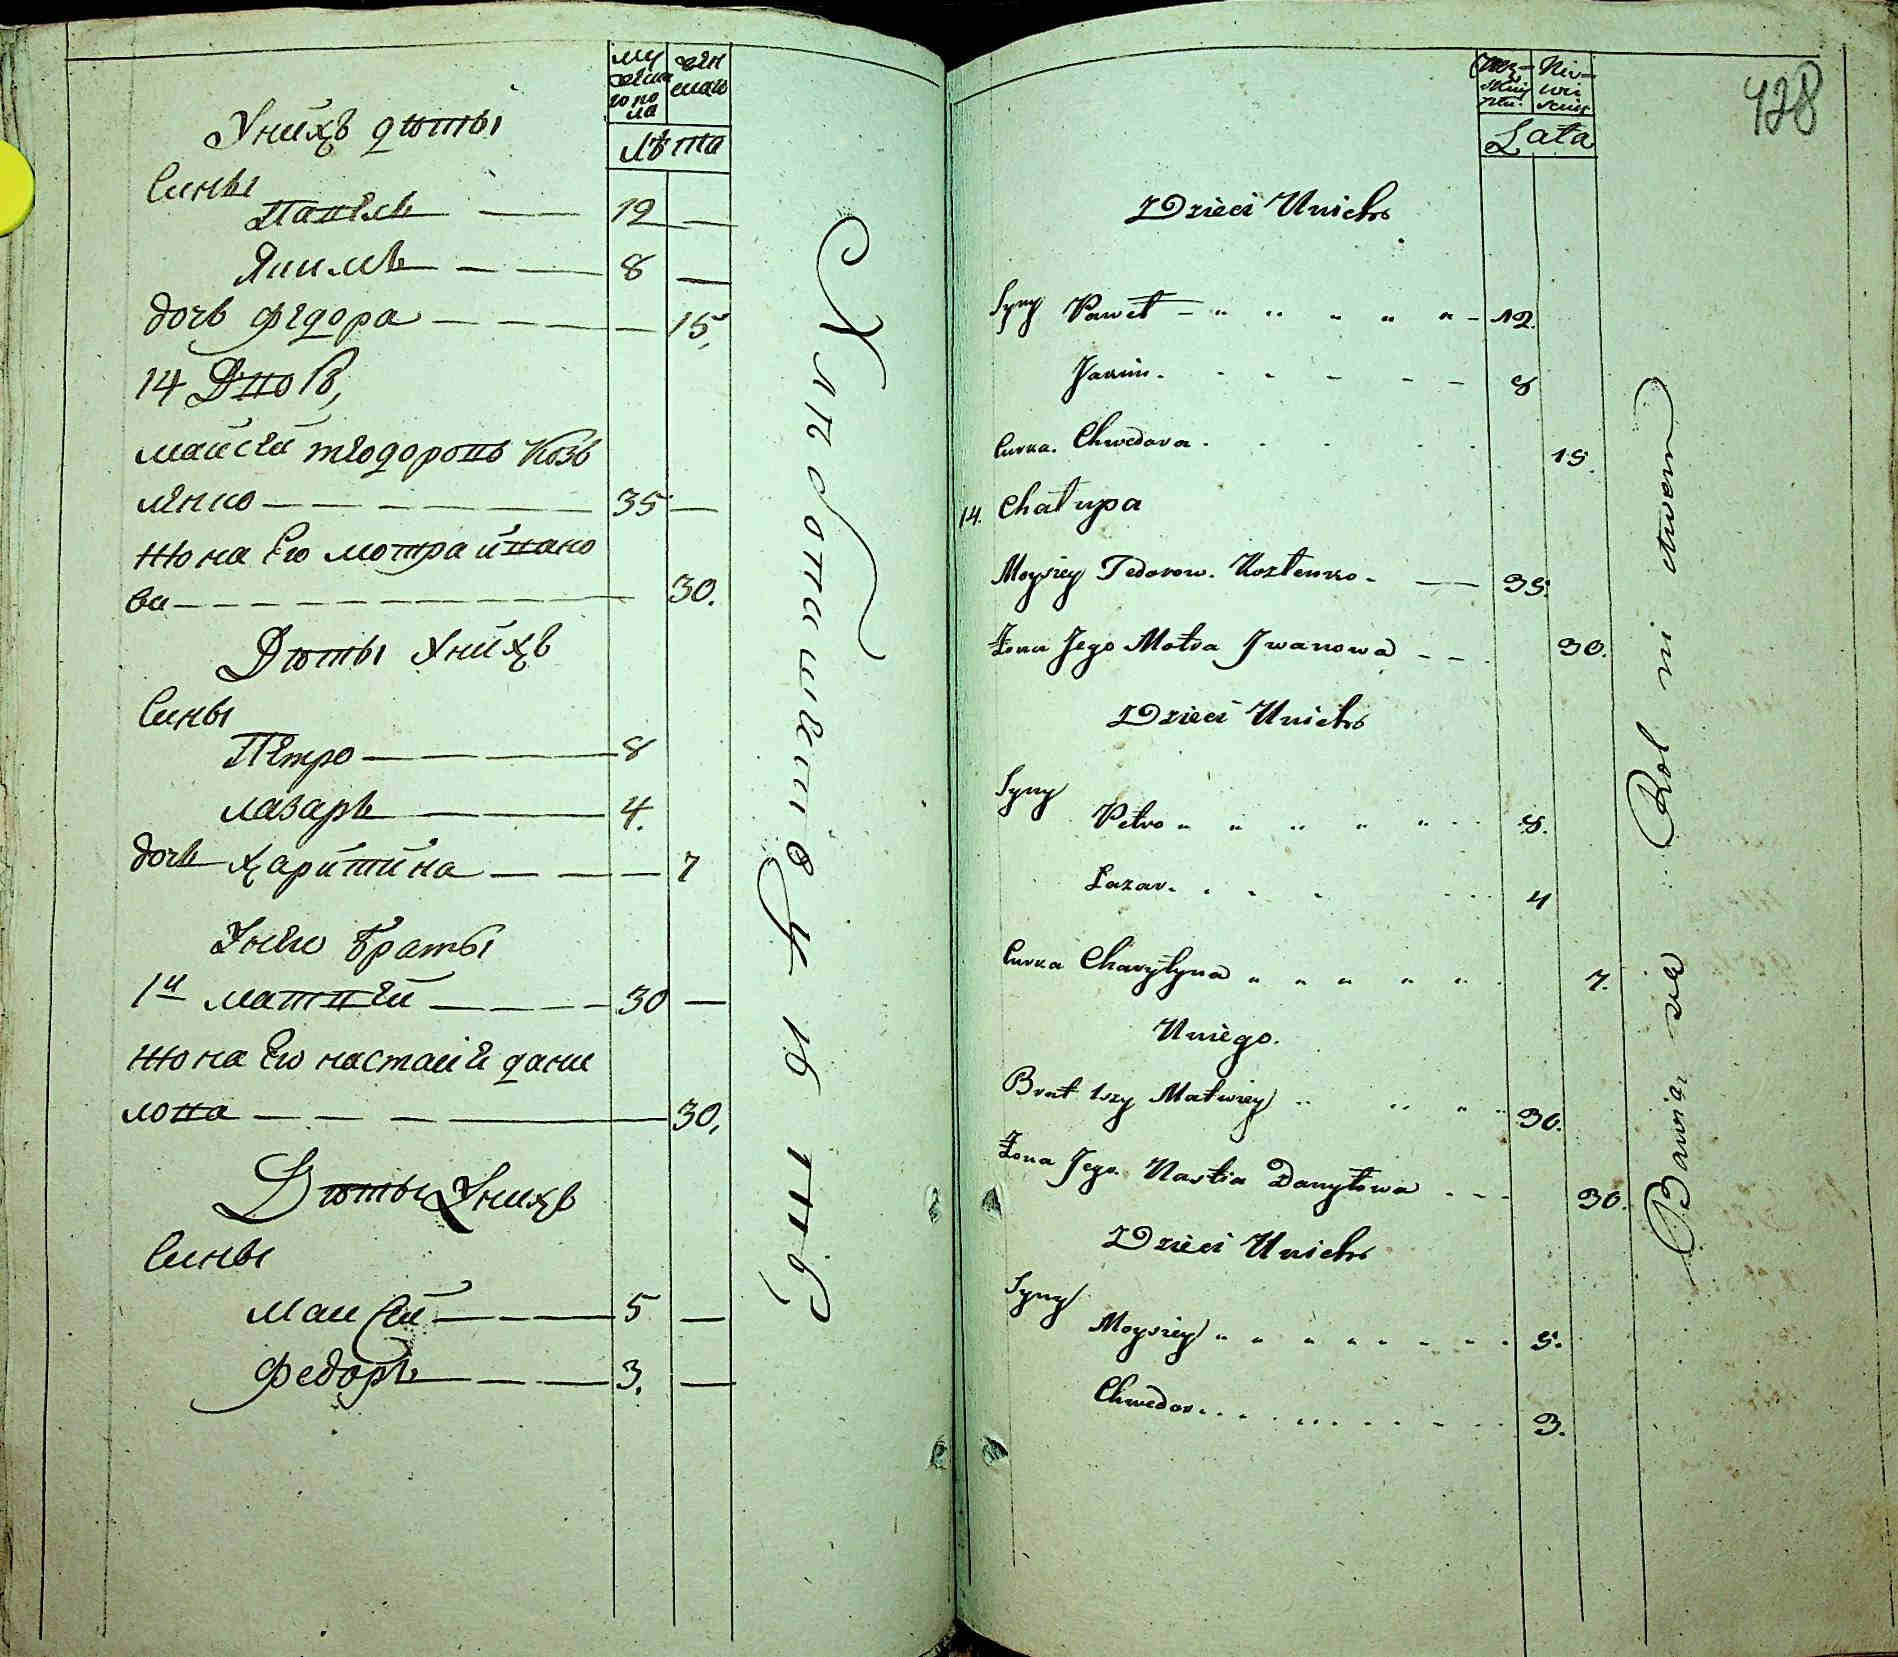 му жеска го по ла
жен скаго
Лѣта
Уних дѣти
Сины
Павелъ — — 12 —
Якимъ — — 8 —
дочь Федора — — — — 15,
14 Двор,
Мойсей Тѣодоровъ Козъ
ленко — — — — — 35 —
Жона Его Мотра Ивано
ва — — — — — — — 30.
Дѣти Унихъ
Сины
Петро — — — — 8
Лазаръ — — — 4.
дочь Харитина — — — 7
Унего Браты
1й Матвей — — — 30 —
Жона Его Настасія Дани
лова — — — — 30,
Дѣти Унихъ
Сины
Мойсей — — — — 5 —
Федоръ — — — 3. —
Хлѣбопашеству
428
Męz- kiej płci
Nie- wie- sciej
Lata
Dzieci Unich
Syny Paweł — " " " " " - 12.
Jakim. - - - - - - 8
Curka. Chwedora . . . . . 15.
14. Chałupa
Moysiey Tedorow. Kozlenko - — 35.
Żona Jego Motra Iwanowa - - . 30.
Dzieci Unich
Syny
Petro " " " " " - - 8.
Łazar. . . . . - - - 4
Curka Charytyna " " " " " . 7.
Uniego.
Brat 1szy Matwiey " " " " 30.
Żona Jego Nastia Danyłowa . - - 30.
Dzieci Unich
Syny
Moysiey " " " " " - - - 5.
Chwedor. . . . . . . . - - 3.
Bawią się Rol ni ctwem